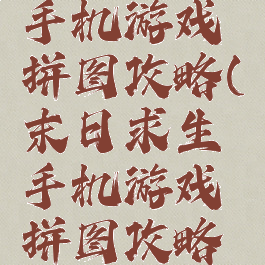 手机游戏
拼图攻略(
末日求生
手机游戏
拼图攻略